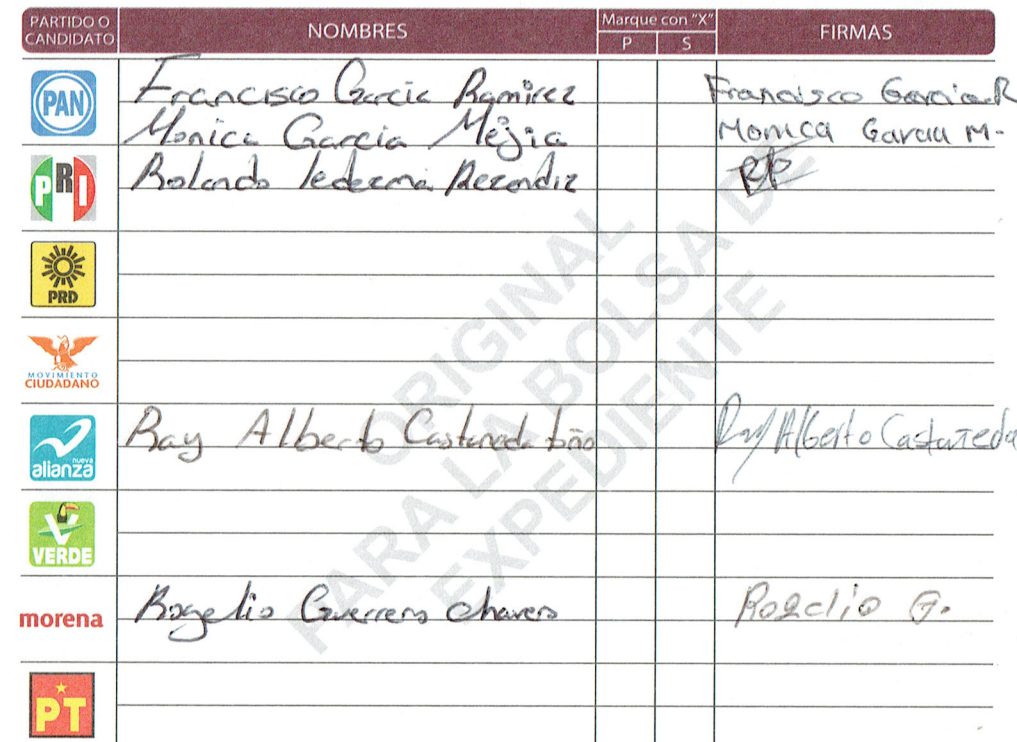 PARTIDO O CANDIDATO
NOMBRES
Marque con "X"
P S
FIRMAS
PAN
Francisco Garcia Ramirez
Francisco Garcia R
Monica Garcia Mejia
Monica Garcia M.
PRI
Rolando Resendiz
PRD
MOVIMIENTO
CIUDADANO
nueva
alianza
Ray Alberto Castaneda
Ray Alberto Castañeda
VERDE
morena
Rogelio Guerrero Chavero
Rogelio G.
PT
ORIGINAL
PARA LA BOLSA DE
EXPEDIENTE